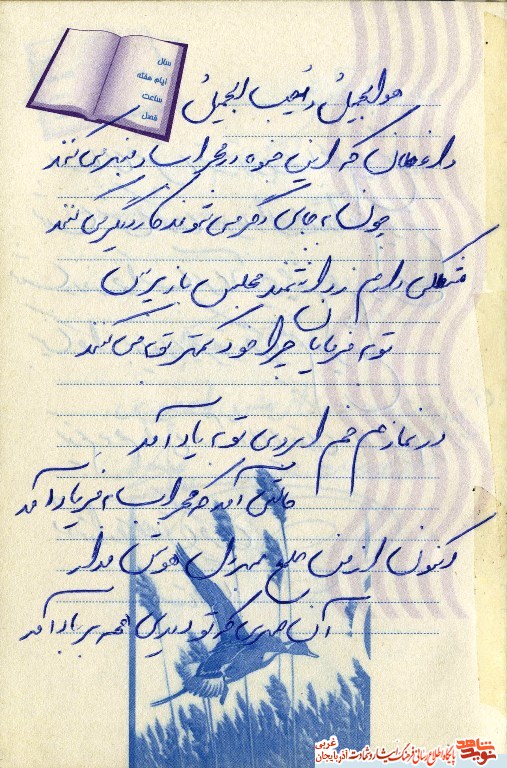 سال
ایام هفته
ساعت
فصل
هو الجمیل و یحب الجمیل
واعظان که این جلوه در محراب و منبر می‌کنند
چون به جای دگر می‌روند کار دیگر می‌کنند
مشکلی دارم ز دانشمند مجلس باز پرس
توبه فرمایان چرا خود کمتر توبه می‌کنند
در نمازم خم ابروی تو به یاد آمد
حالتی آمد که محراب به فریاد آمد
اکنون از من طمع صبر و دل و هوش مدار
آن صبری که تو دیدی همه بر باد آمد
نوید شاهد
آذربایجان غربی
پایگاه اطلاع رسانی فرهنگ ایثار و شهادت